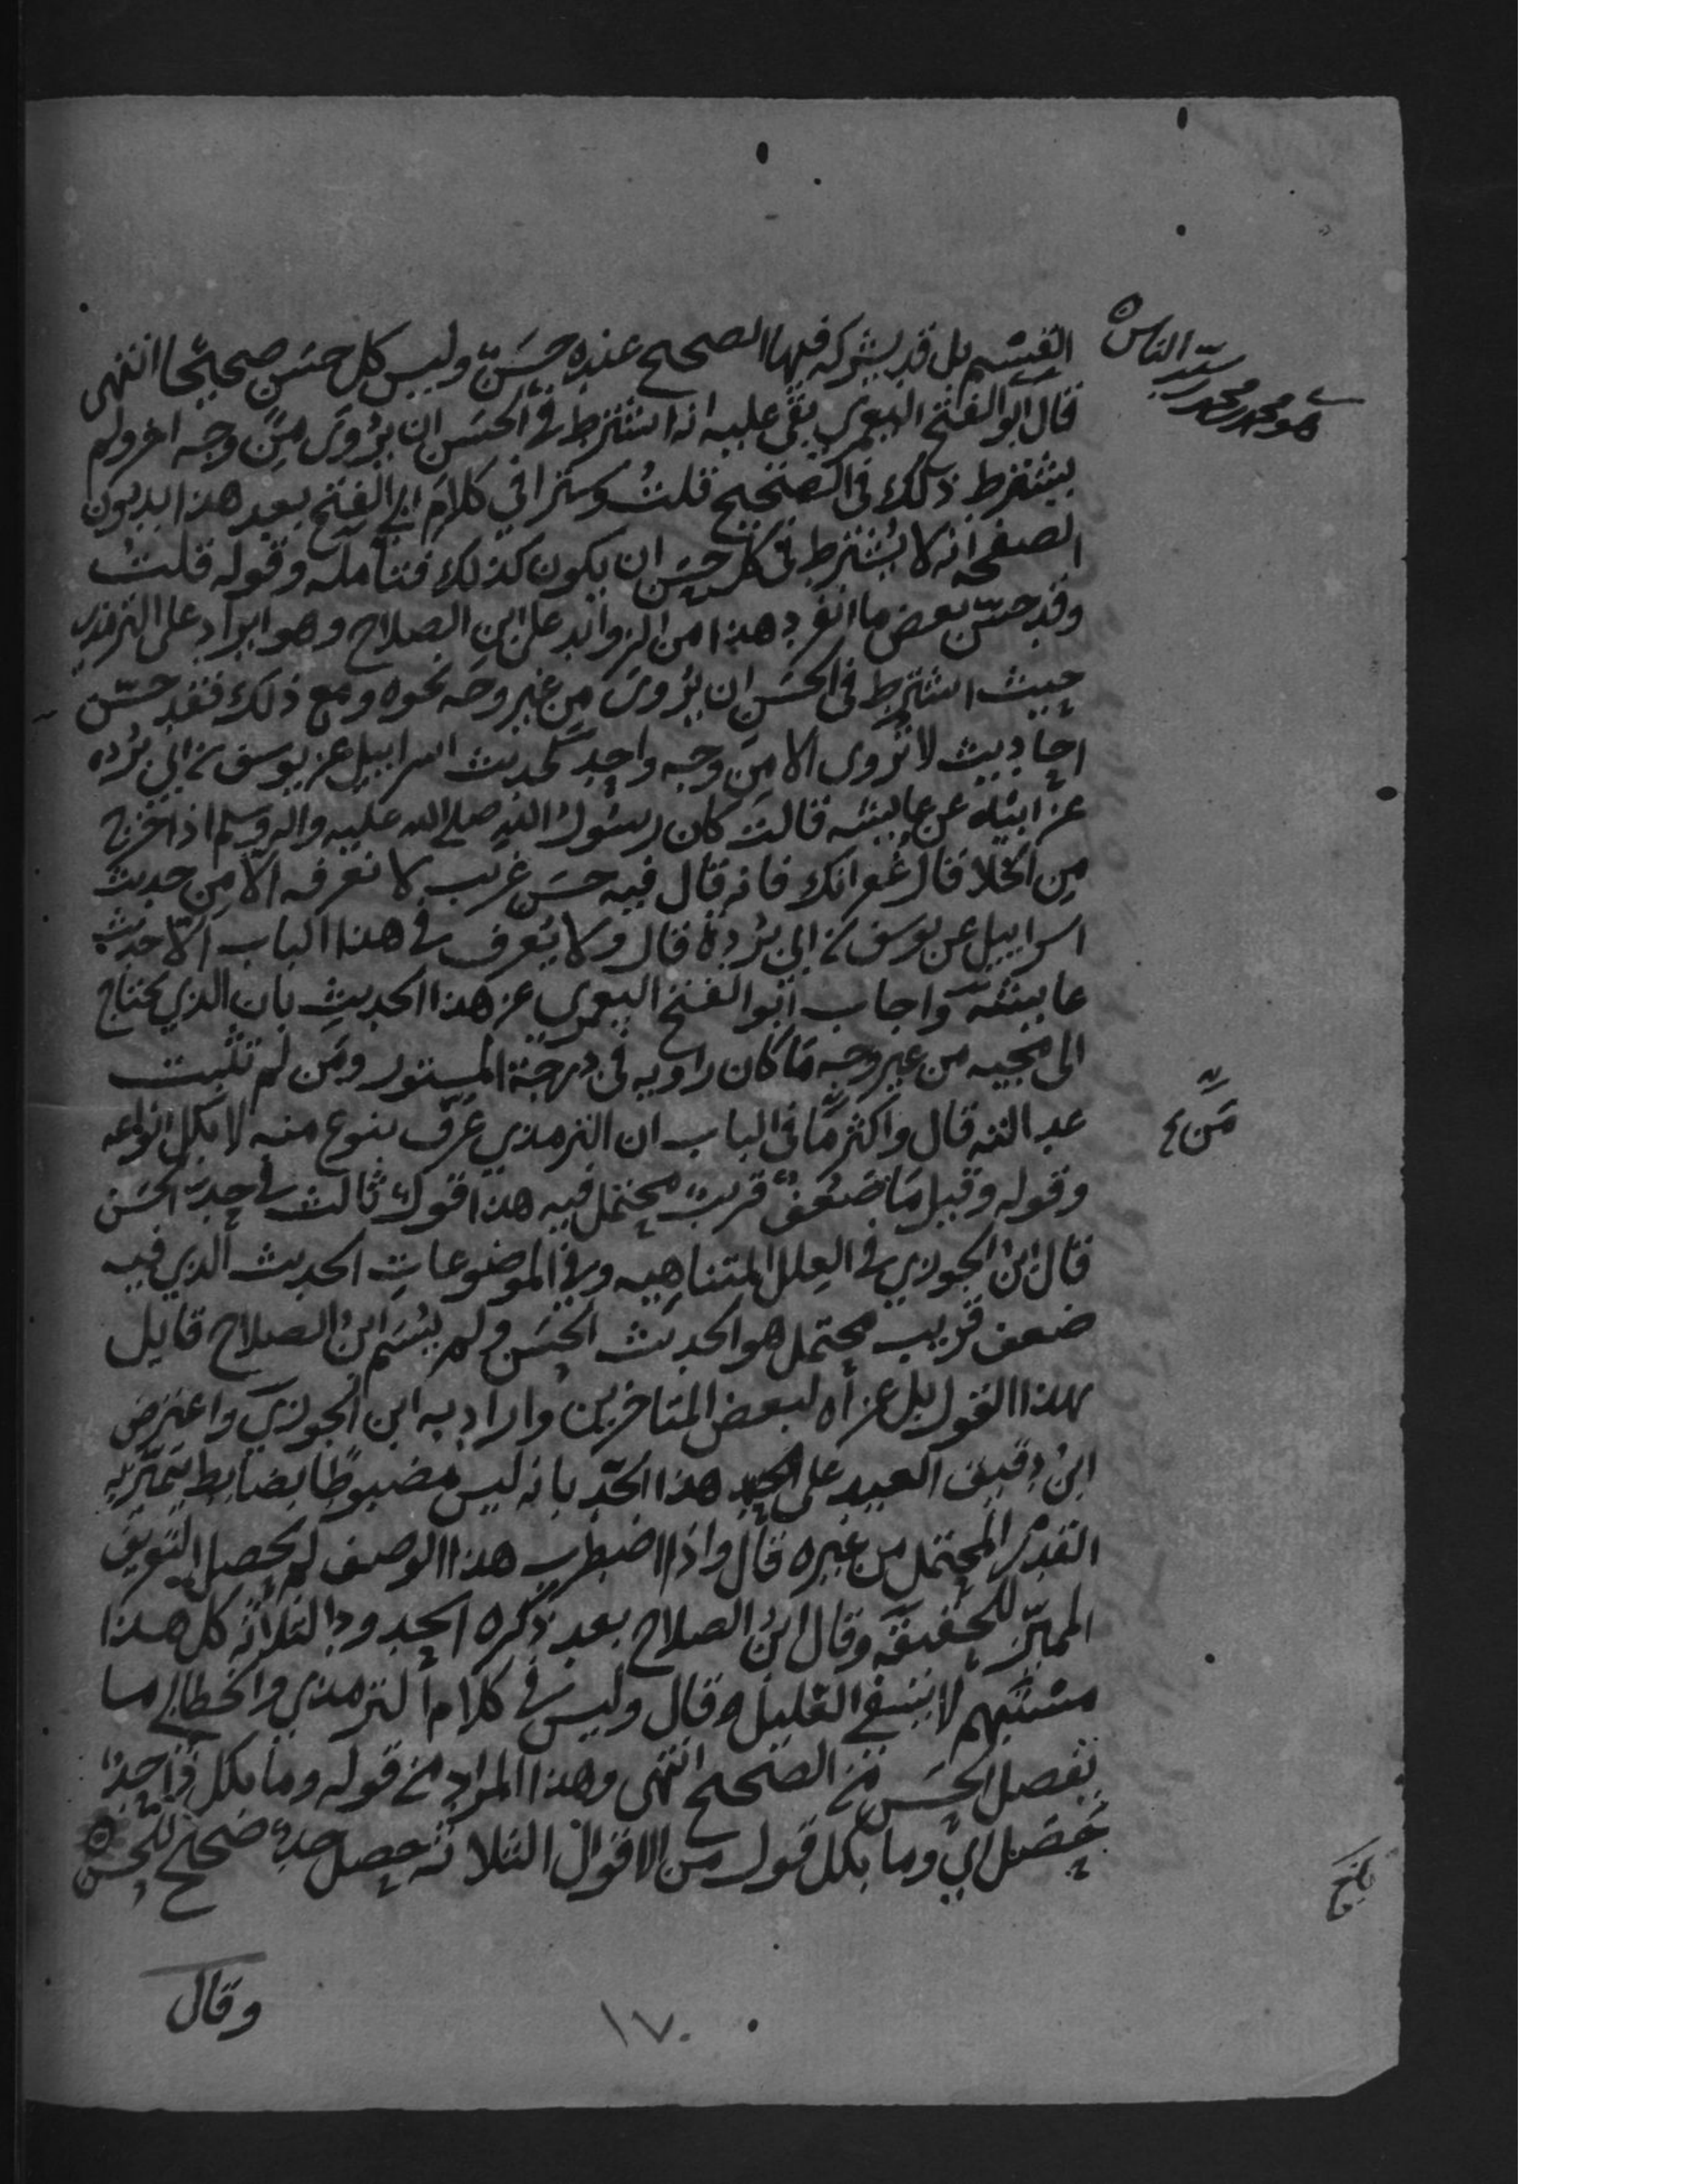 القسم بل قد يشركه فيها الصحيح عنده حسن وليس كل حسن صحيحا انتهى
قال ابو الفتح اليعمري بقى عليه انه اشترط في الحسن ان يروى من وجه اخر ولم
يشترط ذلك في الصحيح قلت وسترا في كلام ابي الفتح بعد هذا بدون
الصفحه انه لا يشترط في كل حسن ان يكون كذلك فتأمله وقوله قلت
وقد حسن بعض ما انفرد هذا من الزوائد على ابن الصلاح وهو ايراد على الترمذي
حيث اشترط في الحسن ان يروى من غير وجه نحوه ومع ذلك فقد حسن
احاديث لا تروى الا من وجه واحد كحديث اسراييل عن يوسف بن ابي برده
عن ابيه عن عايشه قالت كان رسول الله صلى الله عليه واله وسلم اذا خرج
من الخلا قال غفرانك فانه قال فيه حسن غريب لا نعرفه الا من حديث
اسراييل عن يوسف بن ابي بردة قال ولا يعرف في هذا الباب الا حديث
عايشه واجاب ابو الفتح اليعمري عن هذا الحديث بان الذي يحتاج
الى مجيه من غير وجه ما كان راويه في درجة المستور ومن لم تثبت
عدالته قال واكثر ما في الباب ان الترمذي عرف بنوع منه لا بكل انواعه
وقوله وقيل ما ضعف قريب محتمل فيه هذا قول ثالث في حد الحسن
قال ابن الجوزي في العلل المتناهيه وفي الموضوعات الحديث الذي فيه
ضعف قريب محتمل هو الحديث الحسن ولم يسم ابن الصلاح قايل
هذا القول بل عزاه لبعض المتاخرين واراد به ابن الجوزي واعترض
ابن دقيق العيد على هذا الحد بانه ليس مضبوطا بضابط يتميز به
القدر المحتمل من غيره قال واذا اضطرب هذا الوصف لم يحصل التعريف
المميز للحقيقه وقال ابن الصلاح بعد ذكره الحدود الثلاثه كل هذا
مستبهم لا يشفي الغليل قال وليس في كلام الترمذي والخطابي ما
يفصل الحسن من الصحيح انتهى وهذا المراد من قوله وما بكل ذا حد
حصل اي وما بكل قول من الاقوال الثلاثه حصل حد صحيح للحسن
وقال
١٧٠
هو محمد بن محمد بن سيد الناس
من